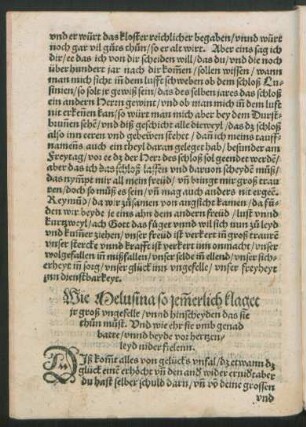 vnd er würt das kloster reichlicher begaben/vnnd würt
noch gar vil gůts thůn/so er alt wirt. Aber eins sag ich
dir/ee das ich von dir scheiden will/das du/vnd die noch
über hundert jar nach dir kom̃en/sollen wissen/wann
man mich sicht im dem lufft schweben ob dem schloß Lu-
sinien/so solt jr gewiß sein/das des selben jares das schloß
ein andern Herrn gewint/vnd ob man mich im̃ dem lufft
nit erkeñen kan/so würt man mich aber bey dem Durst-
brunnen sehẽ/vnd diß geschicht alle dieweyl/das dz schloß
also inn eeren vnd gebewen stehet/dañ ich meins tauff-
namens auch ein theyl daran geleget hab/besunder am
Freytag/vor ee dz der Herr des schloß sol geendet werdẽ/
aber das ich das schloß lassen vnd daruon scheydẽ můß/
das nympt mir all mein freüd/vñ bringt mir groß trau
ren/doch so můß es sein/vñ mag auch anders nit ergeẽ.
Reymũd/da wir zůsamen von angsticht kamen/da fů-
den wir beyde je eins ahn dem andern freüd/lust vnnd
kurtzweyl/ach Gott das fůget vnns nun zů leyd
vnd kum̃er ziehen/vnser freüd ist verkert im̃ groß traurẽ
vnser stercke vnnd krafft ist verkert inn onmacht/vnser
wolgefallen im̃ mißfallen/vnser selde im̃ ellend/vnser sich-
erheyt im̃ sorg/vnser glück inn vngefelle/vnser freyheyt
inn dienstbarkeyt.
Wie Melusina so jem̃erlich klaget
jr groß vngefelle/vnnd hinscheyden das sie
thůn můst. Vnd wie ehr sie vmb genad
batte/vnnd beyde vor hertzen-
leyd nider fielenn.
DIß kom̃t alles von gelücks vnfal/dz etwann dz
glück einẽ erhöcht vñ den andʼ wider ernidʼt aber
du hast selber schuld darũ/vñ võ deine grossen
vnd